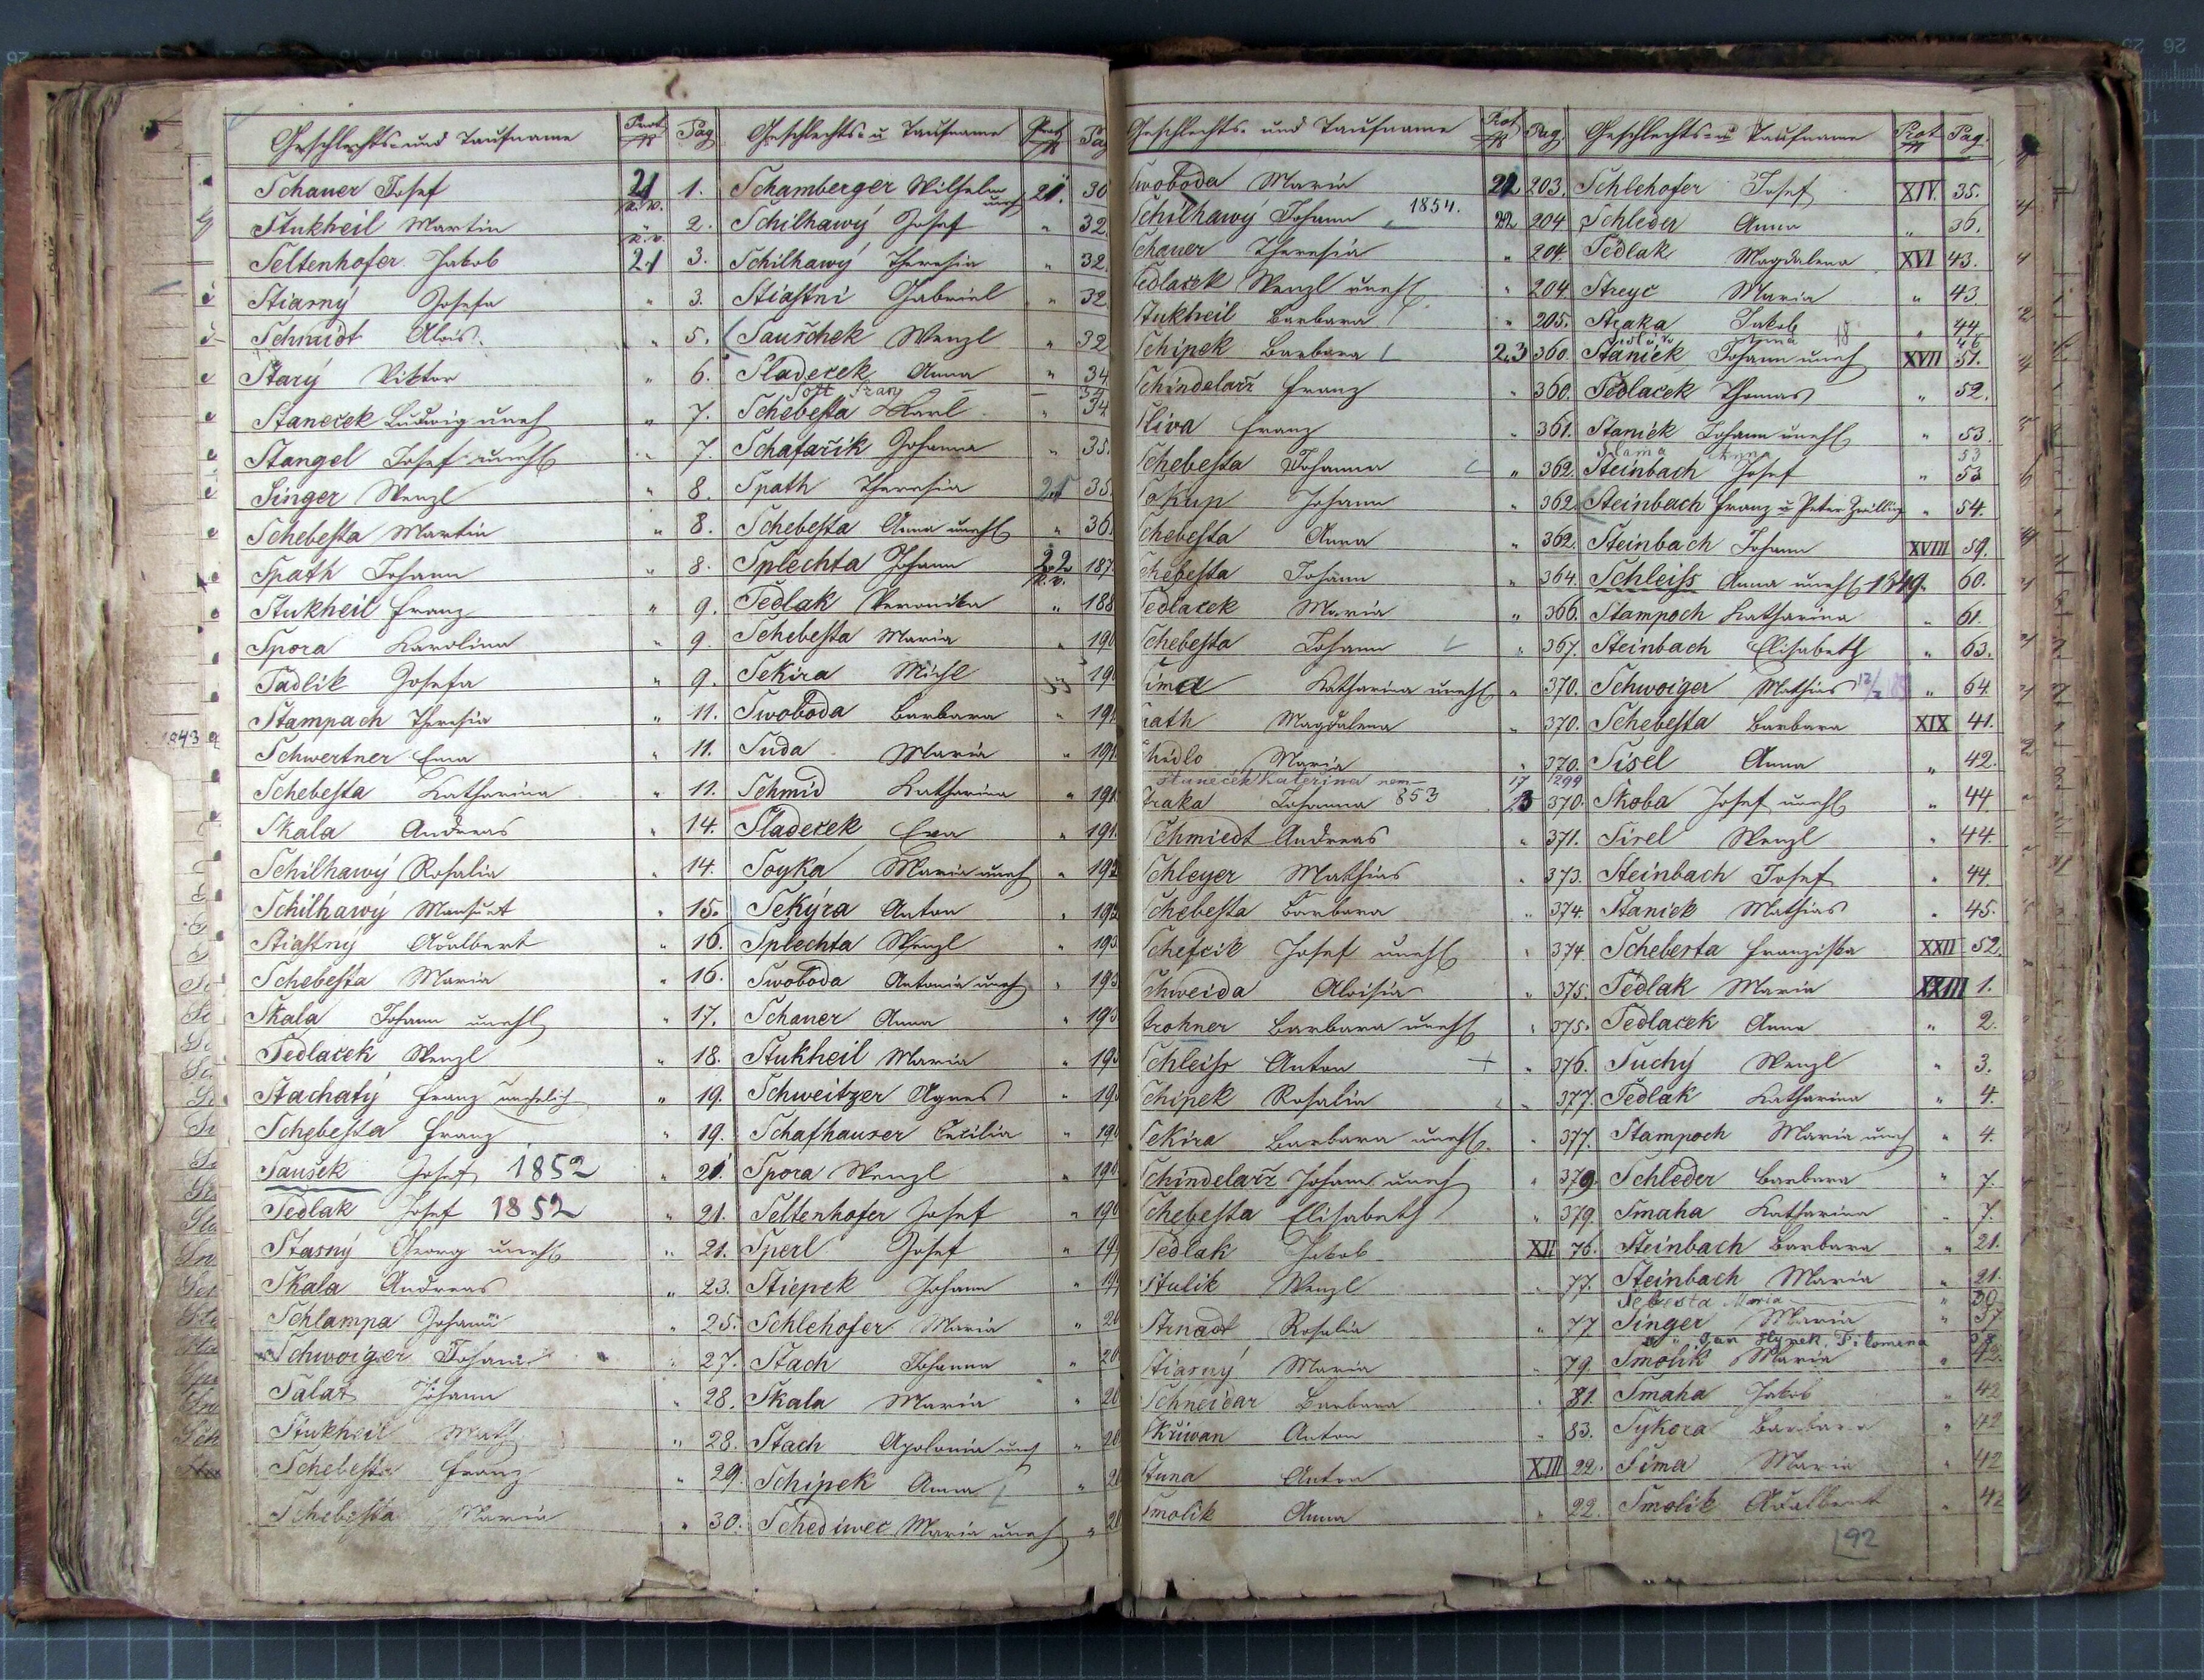 Geschlechts- und Taufname Prot. N Pag
Schauer Josef 21 1.
Stukheil Martin " 2.
Seltenhofer Jakob 21 3.
Stiasny Josefa " 3.
Schmidt Alois " 5.
Starý Viktor " 6.
Stanecek Ludwig uneh " 7.
Stangel Josef unehl " 7.
Singer Wenzl " 8.
Schebesta Martin " 8.
Spath Johann " 8.
Stukheil Franz " 9.
Spora Karolina " 9.
Sadlik Josefa " 9.
Stampach Theresia " 11.
Schwertner Ema " 11.
Schebesta Katharina " 11.
Skala Andreas " 14.
Schilhawý Rosalia " 14.
Schilhawý Mansuet " 15.
Stiastný Adalbert " 16.
Schebesta Maria " 16.
Skala Johann unehl " 17.
Sedlacek Wenzl " 18.
Stachatý Franz unehelich " 19.
Schebesta Franz " 19.
Saušek Josef 1852 " 21.
Sedlak Josef 1852 " 21.
Stasný Georg unehl " 21.
Skala Andreas " 23.
Schlampa Johann " 25.
Schwoiger Johann " 27.
Salaz Johann " 28.
Stukheil Math " 28.
Schebesta Franz " 29.
Schebesta Maria " 30.
Geschlechts- u Taufname Prot N Pag
Schamberger Wilhelm uneh 21. 30
Schilhawý Josef " 32.
Schilhawý Theresia " 32.
Stiastni Gabriel " 32
Sauschek Wenzl " 32
Sladecek Anna " 34
Schebesta Karl " 34
Schafařik Johanna " 35.
Spath Theresia 21 35
Schebesta Anna unehl " 36.
Splechta Johann 22 187.
Sedlak Veronika " 188
Schebesta Maria " 190
Sekira Michl " 190
Swoboda Barbara " 191
Suda Maria " 191
Schmid Katharina " 191
Sladecek Eva " 191.
Soyka Maria uneh " 192
Sekýra Anton " 192
Splechta Wenzl " 193
Swoboda Antonia uneh " 193
Schauer Anna " 193
Stukheil Maria " 193
Schweitzer Agnes " 19
Schafhauser Cecilia " 19
Spora Wenzl " 19
Seltenhofer Josef " 19
Sperl Josef " 19
Stiepek Johann " 19
Schlehofer Maria " 20
Stach Johanna " 20
Skala Maria " 20
Stach Apolonia uneh " 20
Schipek Anna " 20
Schediwec Maria uneh " 20
Geschlechts- und Taufname Prot N Pag.
Swoboda Maria 22 203.
Schilhawý Johann 1854. 22 204
Schauer Theresia " 204
Sedlacek Wenzl unehl " 204
Stukheil Barbara " 205.
Schipek Barbara 23 360.
Schindelarz Franz " 360.
Sliva Franz " 361.
Schebesta Johanna " 362.
Sokup Johann " 362.
Schebesta Anna " 362.
Schebesta Johann " 364.
Sedlacek Maria " 366.
Schebesta Johann " 367.
Sima Katharina unehl " 370.
Spath Magdalena " 370.
Maria " 370.
Staneček Kateřina nem 17 299
Straka Johanna 853 23 370
Schmiedt Andreas " 371.
Schleyer Mathias " 373.
Schebesta Barbara " 374.
Schefcik Josef unehl " 374
Schweida Aloisia " 375.
Strohner Barbara unehl " 375.
Schleiss Anton + " 376.
Schipek Rosalia " 377.
Sekira Barbara unehl. " 377.
Schindelarz Johann uneh " 379.
Schebesta Elisabeth " 379.
Sedlak Jakob XII 76.
Stulik Wenzl " 77.
Strnadt Rosalia " 77
Stiasný Maria " 79.
Schneidar Barbara " 81.
Skřiwan Anton " 83.
Stuna Anton XIII 22.
Smolik Anna " 22.
Geschlechts- u Taufname Prot N Pag.
Schlehofer Josef XIV. 35.
Schleder Anna " 36.
Sedlak Magdalena XVI 43.
Streyc Maria " 43
Straka Jakob " 44
Staniek Johann uneh XVII 51.
Sedlacek Thomas " 52.
Staniek Johann unehl " 53.
Slama Anna 53
Steinbach Josef " 53
Steinbach Franz u Peter Zwilling " 54.
Steinbach Johann XVIII 59.
Schleiss Anna unehl 1849. 60.
Stampoch Katharina " 61.
Steinbach Elisabeth " 63.
Schwoiger Mathias " 64.
Schebesta Barbara XIX 41.
Sisel Anna " 42.
Skoba Josef unehl " 44
Sirel Wenzl " 44.
Steinbach Josef " 44.
Staniek Mathias " 45.
Scheberta Franziska XXII 52.
Sedlak Maria XXIII 1.
Sedlacek Anna " 2.
Suchý Wenzl " 3.
Sedlak Katharina " 4.
Stampoch Maria uneh " 4.
Schleder Barbara " 7.
Smaha Katharina " 7.
Steinbach Barbara " 21.
Steinbach Maria " 21.
Šebesta Maria " 30
Singer Maria " 37
Jan Hynek, Filomena
Smolik Maria " 42.
Smaha Jakob " 42
Sykora Barbara " 42
Sima Maria " 42
Smolik Adalbert " 42
92